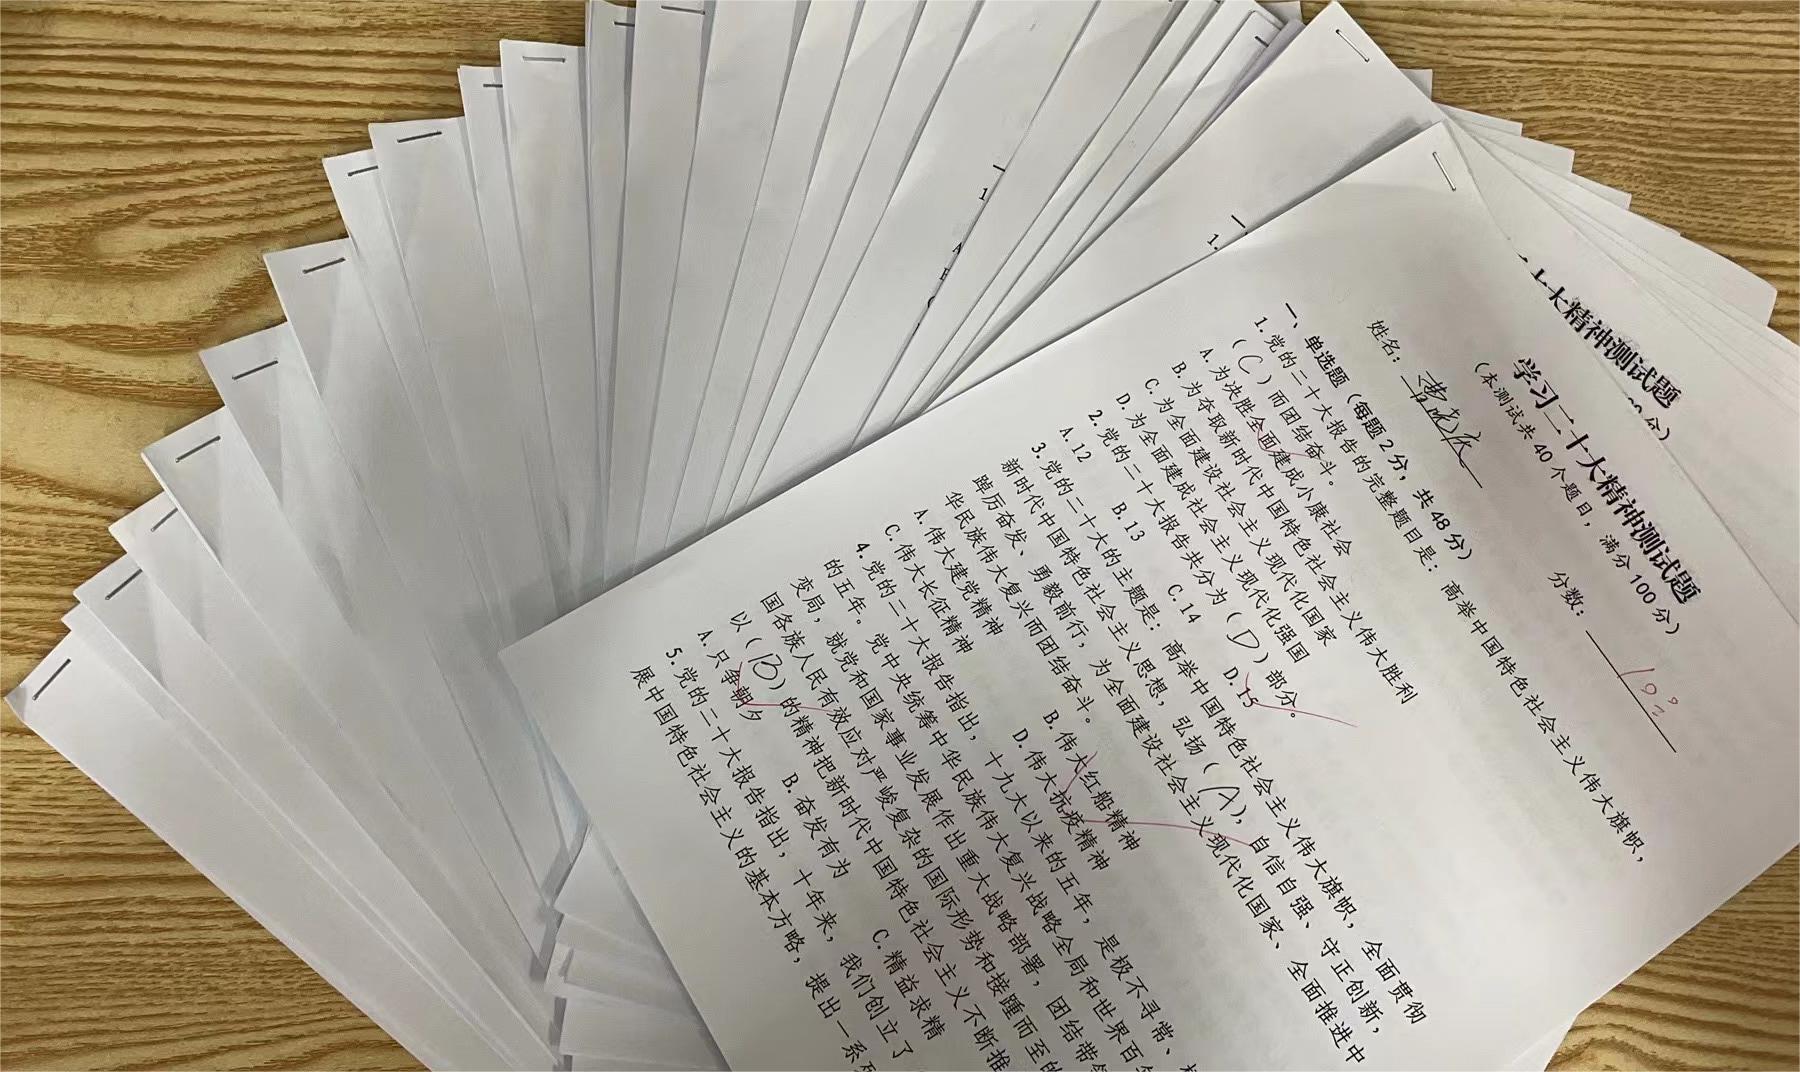 十大精神测试题
分）
学习二十大精神测试题
（本测试共 40 个题目，满分 100 分）
姓名：
分数：
100
一、单选题（每题 2 分，共 48 分）
1.党的二十大报告的完整题目是：高举中国特色社会主义伟大旗帜，
（C）而团结奋斗。
A.为决胜全面建成小康社会
B.为夺取新时代中国特色社会主义伟大胜利
C.为全面建设社会主义现代化国家
D.为全面建成社会主义现代化强国
2.党的二十大报告共分为（D）部分。
A.12 B.13 C.14 D.15
3.党的二十大的主题是：高举中国特色社会主义伟大旗帜，全面贯彻
新时代中国特色社会主义思想，弘扬（A），自信自强、守正创新，
踔厉奋发、勇毅前行，为全面建设社会主义现代化国家、全面推进中
华民族伟大复兴而团结奋斗。
A.伟大建党精神 B.伟大红船精神
C.伟大长征精神 D.伟大抗疫精神
4.党的二十大报告指出，十九大以来的五年，是极不寻常、
的五年。党中央统筹中华民族伟大复兴战略全局和世界百
变局，就党和国家事业发展作出重大战略部署，团结带
国各族人民有效应对严峻复杂的国际形势和接踵而至的
以（B）的精神把新时代中国特色社会主义不断推
A.只争朝夕 B.奋发有为 C.精益求精
5.党的二十大报告指出，十年来，我们创立了
展中国特色社会主义的基本方略，提出一系
一
1
一
1.